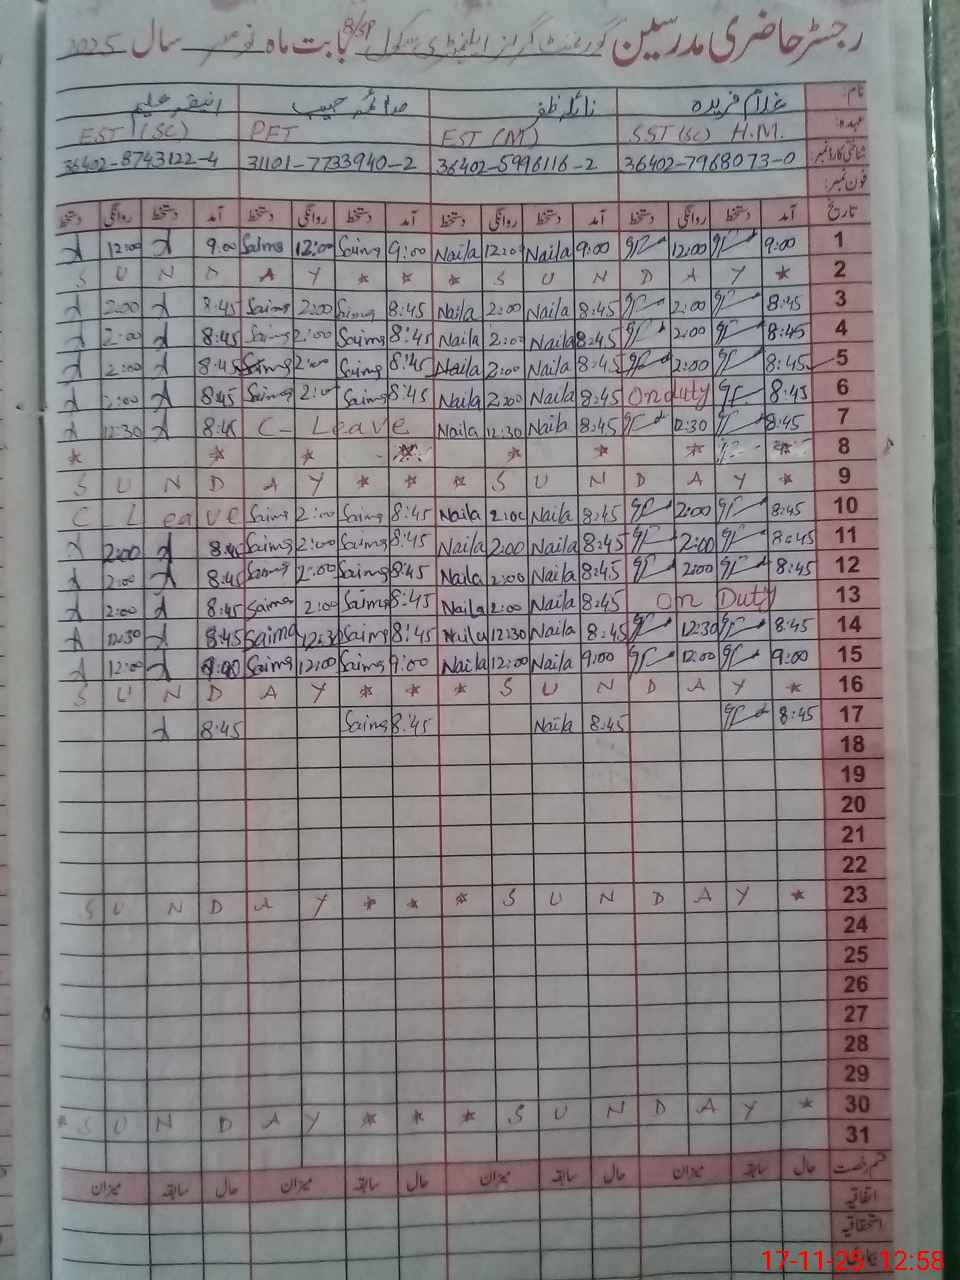 رجسٹر حاضری مدرسین گورنمنٹ گرلز ایلیمنٹری سکول بابت ماہ نومبر سال 2025
نام: غلام فریدہ نائلہ ظفر صائمہ حبیب
عہدہ: SST (SC) H.M. EST (M) PET EST (SC)
شناختی کارڈ نمبر: 36402-7968073-0 36402-5996116-2 31101-7733940-2 36402-8743122-4
فون نمبر:
تاریخ آمد دستخط روانگی دستخط آمد دستخط روانگی دستخط آمد دستخط روانگی دستخط آمد دستخط روانگی دستخط
1 9:00 12:00 9:00 Naila 12:00 Naila 9:00 Saima 12:00 Saima 9:00 12:00
2 S U N D A Y * * * S U N D A Y *
3 8:45 2:00 8:45 Naila 2:00 Naila 8:45 Saima 2:00 Saima 8:45 2:00
4 8:45 2:00 8:45 Naila 2:00 Naila 8:45 Saima 2:00 Saima 8:45 2:00
5 8:45 2:00 8:45 Naila 2:00 Naila 8:45 Saima 2:00 Saima 8:45 2:00
6 8:45 On duty 8:45 Naila 2:00 Naila 8:45 Saima 2:00 Saima 8:45 2:00
7 8:45 12:30 8:45 Naila 12:30 Naila C- Leave 8:45 12:30
8 * * * * * * * *
9 S U N D A Y * * * S U N D A Y *
10 8:45 2:00 8:45 Naila 2:00 Naila 8:45 Saima 2:00 Saima C Leave
11 8:45 2:00 8:45 Naila 2:00 Naila 8:45 Saima 2:00 Saima 8:45 2:00
12 8:45 2:00 8:45 Naila 2:00 Naila 8:45 Saima 2:00 Saima 8:45 2:00
13 On Duty 8:45 Naila 2:00 Naila 8:45 Saima 2:00 Saima 8:45 2:00
14 8:45 12:30 8:45 Naila 12:30 Naila 8:45 Saima 12:30 Saima 8:45 12:30
15 9:00 12:00 9:00 Naila 12:00 Naila 9:00 Saima 12:00 Saima 9:00 12:00
16 S U N D A Y * * * S U N D A Y *
17 8:45 8:45 Naila 8:45 Saima 8:45
18
19
20
21
22
23 S U N D A Y * * * S U N D A Y *
24
25
26
27
28
29
30 * S U N D A Y * * * S U N D A Y *
31
قسم رخصت حال سابقہ میزان حال سابقہ میزان حال سابقہ میزان حال سابقہ میزان
اتفاقیہ
استحقاقیہ
17-11-25 12:58